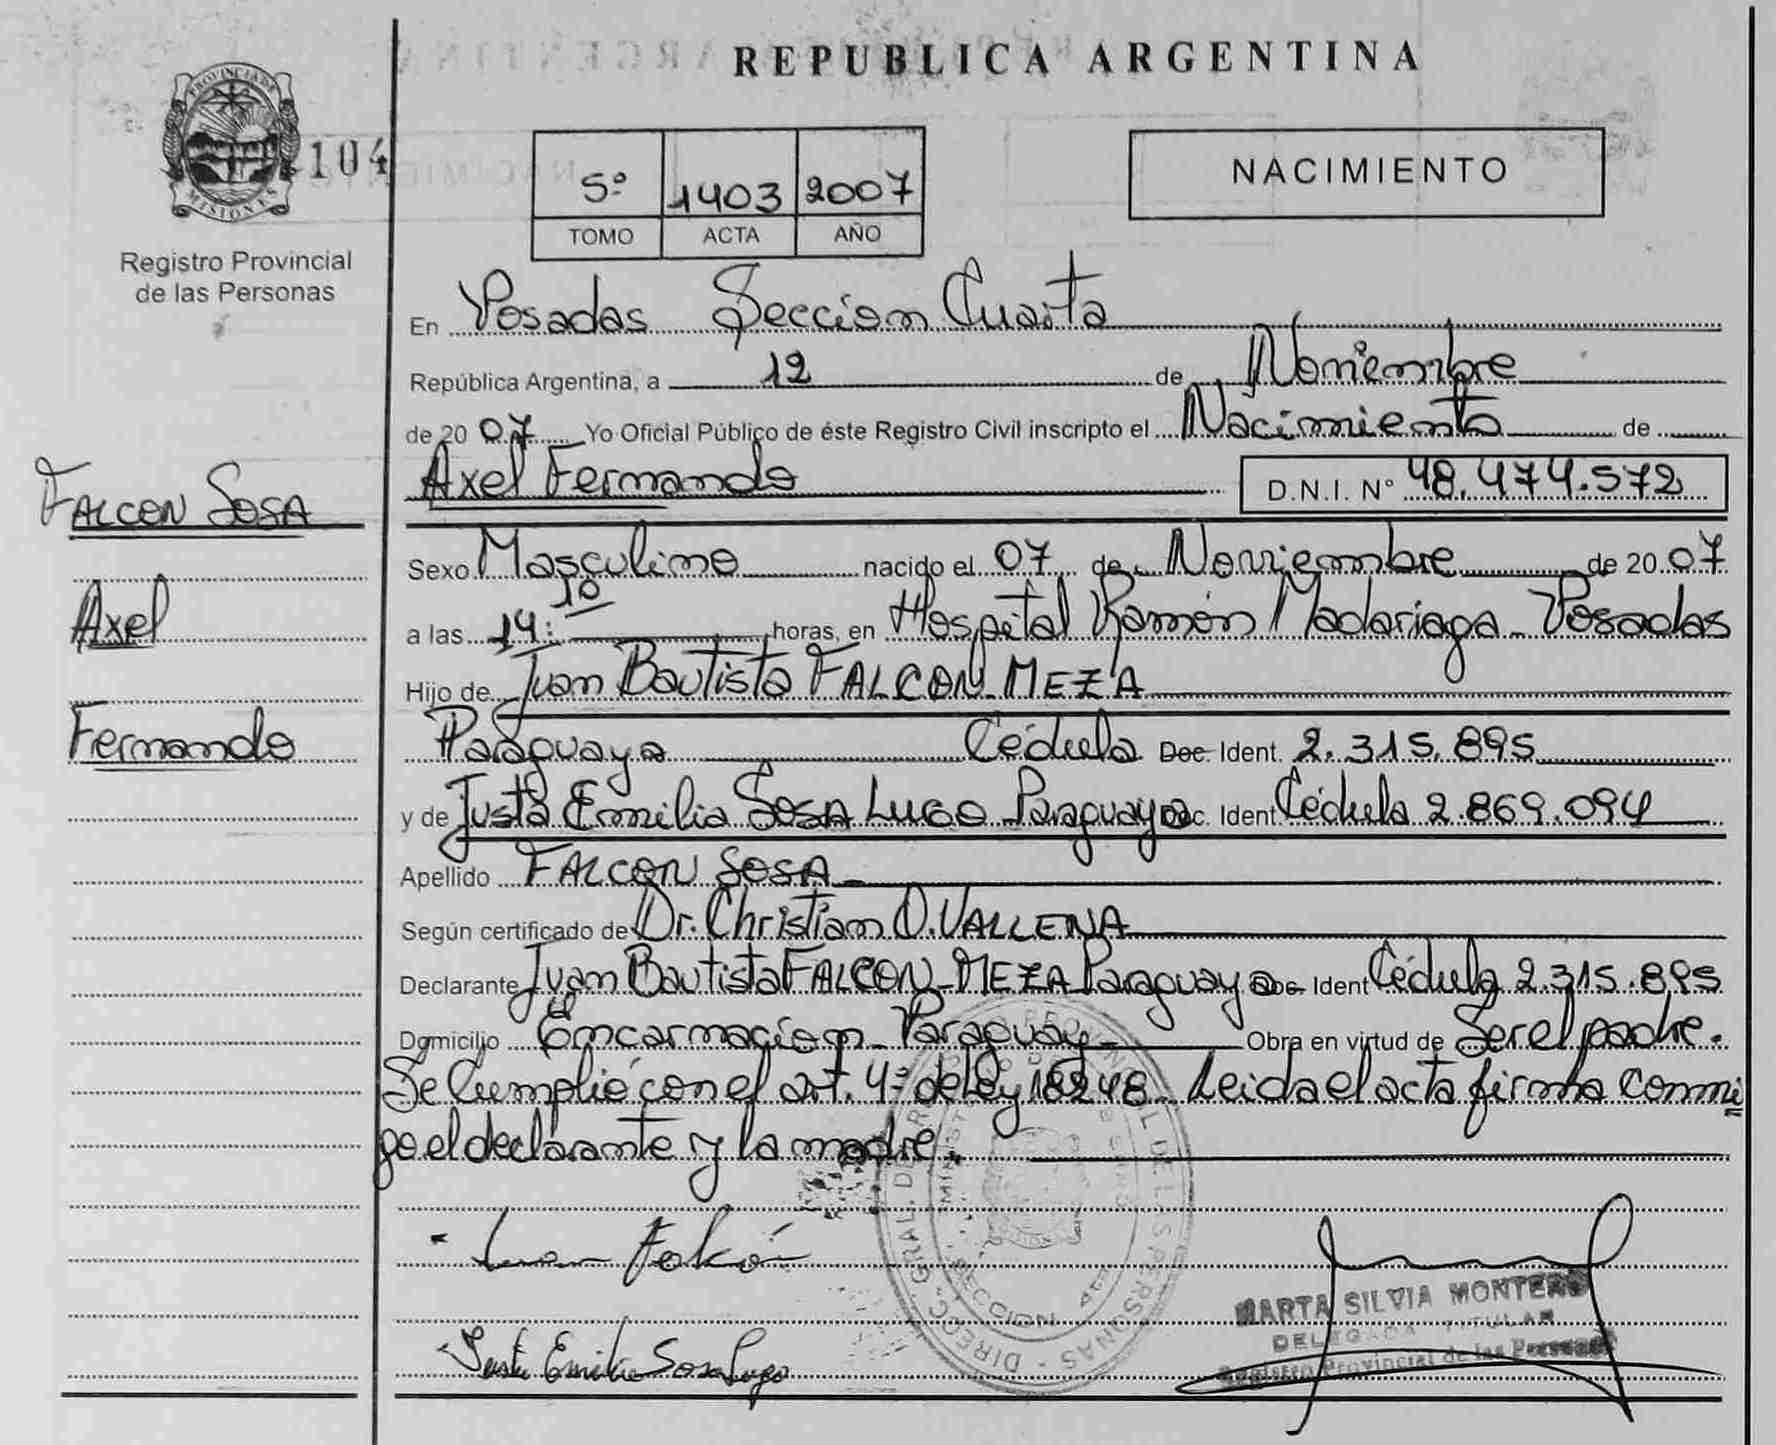 REPUBLICA ARGENTINA
PROVINCIA DE
MISIONES
104
Registro Provincial
de las Personas
5º 1403 2007
TOMO ACTA AÑO
NACIMIENTO
En Posadas Seccion Cuarta
República Argentina, a 12 de Noviembre
de 20 07 Yo Oficial Público de éste Registro Civil inscripto el Nacimiento de
Axel Fernando D.N.I. Nº 48.474.572
FALCON SOSA
Axel
Fernando
Sexo Masculino nacido el 07 de Noviembre de 20 07
a las 14:10 horas, en Hospital Ramón Madariaga - Posadas
Hijo de Juan Bautista FALCON - MEZA
Paraguaya Cédula Doc. Ident. 2.315.895
y de Justa Emilia SOSA LUGO Paraguaya Doc. Ident. Cédula 2.869.094
Apellido FALCON SOSA
Según certificado de Dr. Christian O. VALLENA
Declarante Juan Bautista FALCON - MEZA Paraguaya Doc. Ident Cédula 2.315.895
Domicilio Encarnación - Paraguay - Obra en virtud de Ser el padre.
Se Cumplió con el art. 4º de Ley 18248 - Leida el acta firma conmi
go el declarante y la madre.
Juan Falcón
Justa Emilia Sosa Lugo
DIRECC. GRAL. DE REGISTRO PROVINCIAL DE LAS PERSONAS
SECCION 4ta
MARTA SILVIA MONTERO
DELEGADA TITULAR
Registro Provincial de las Personas